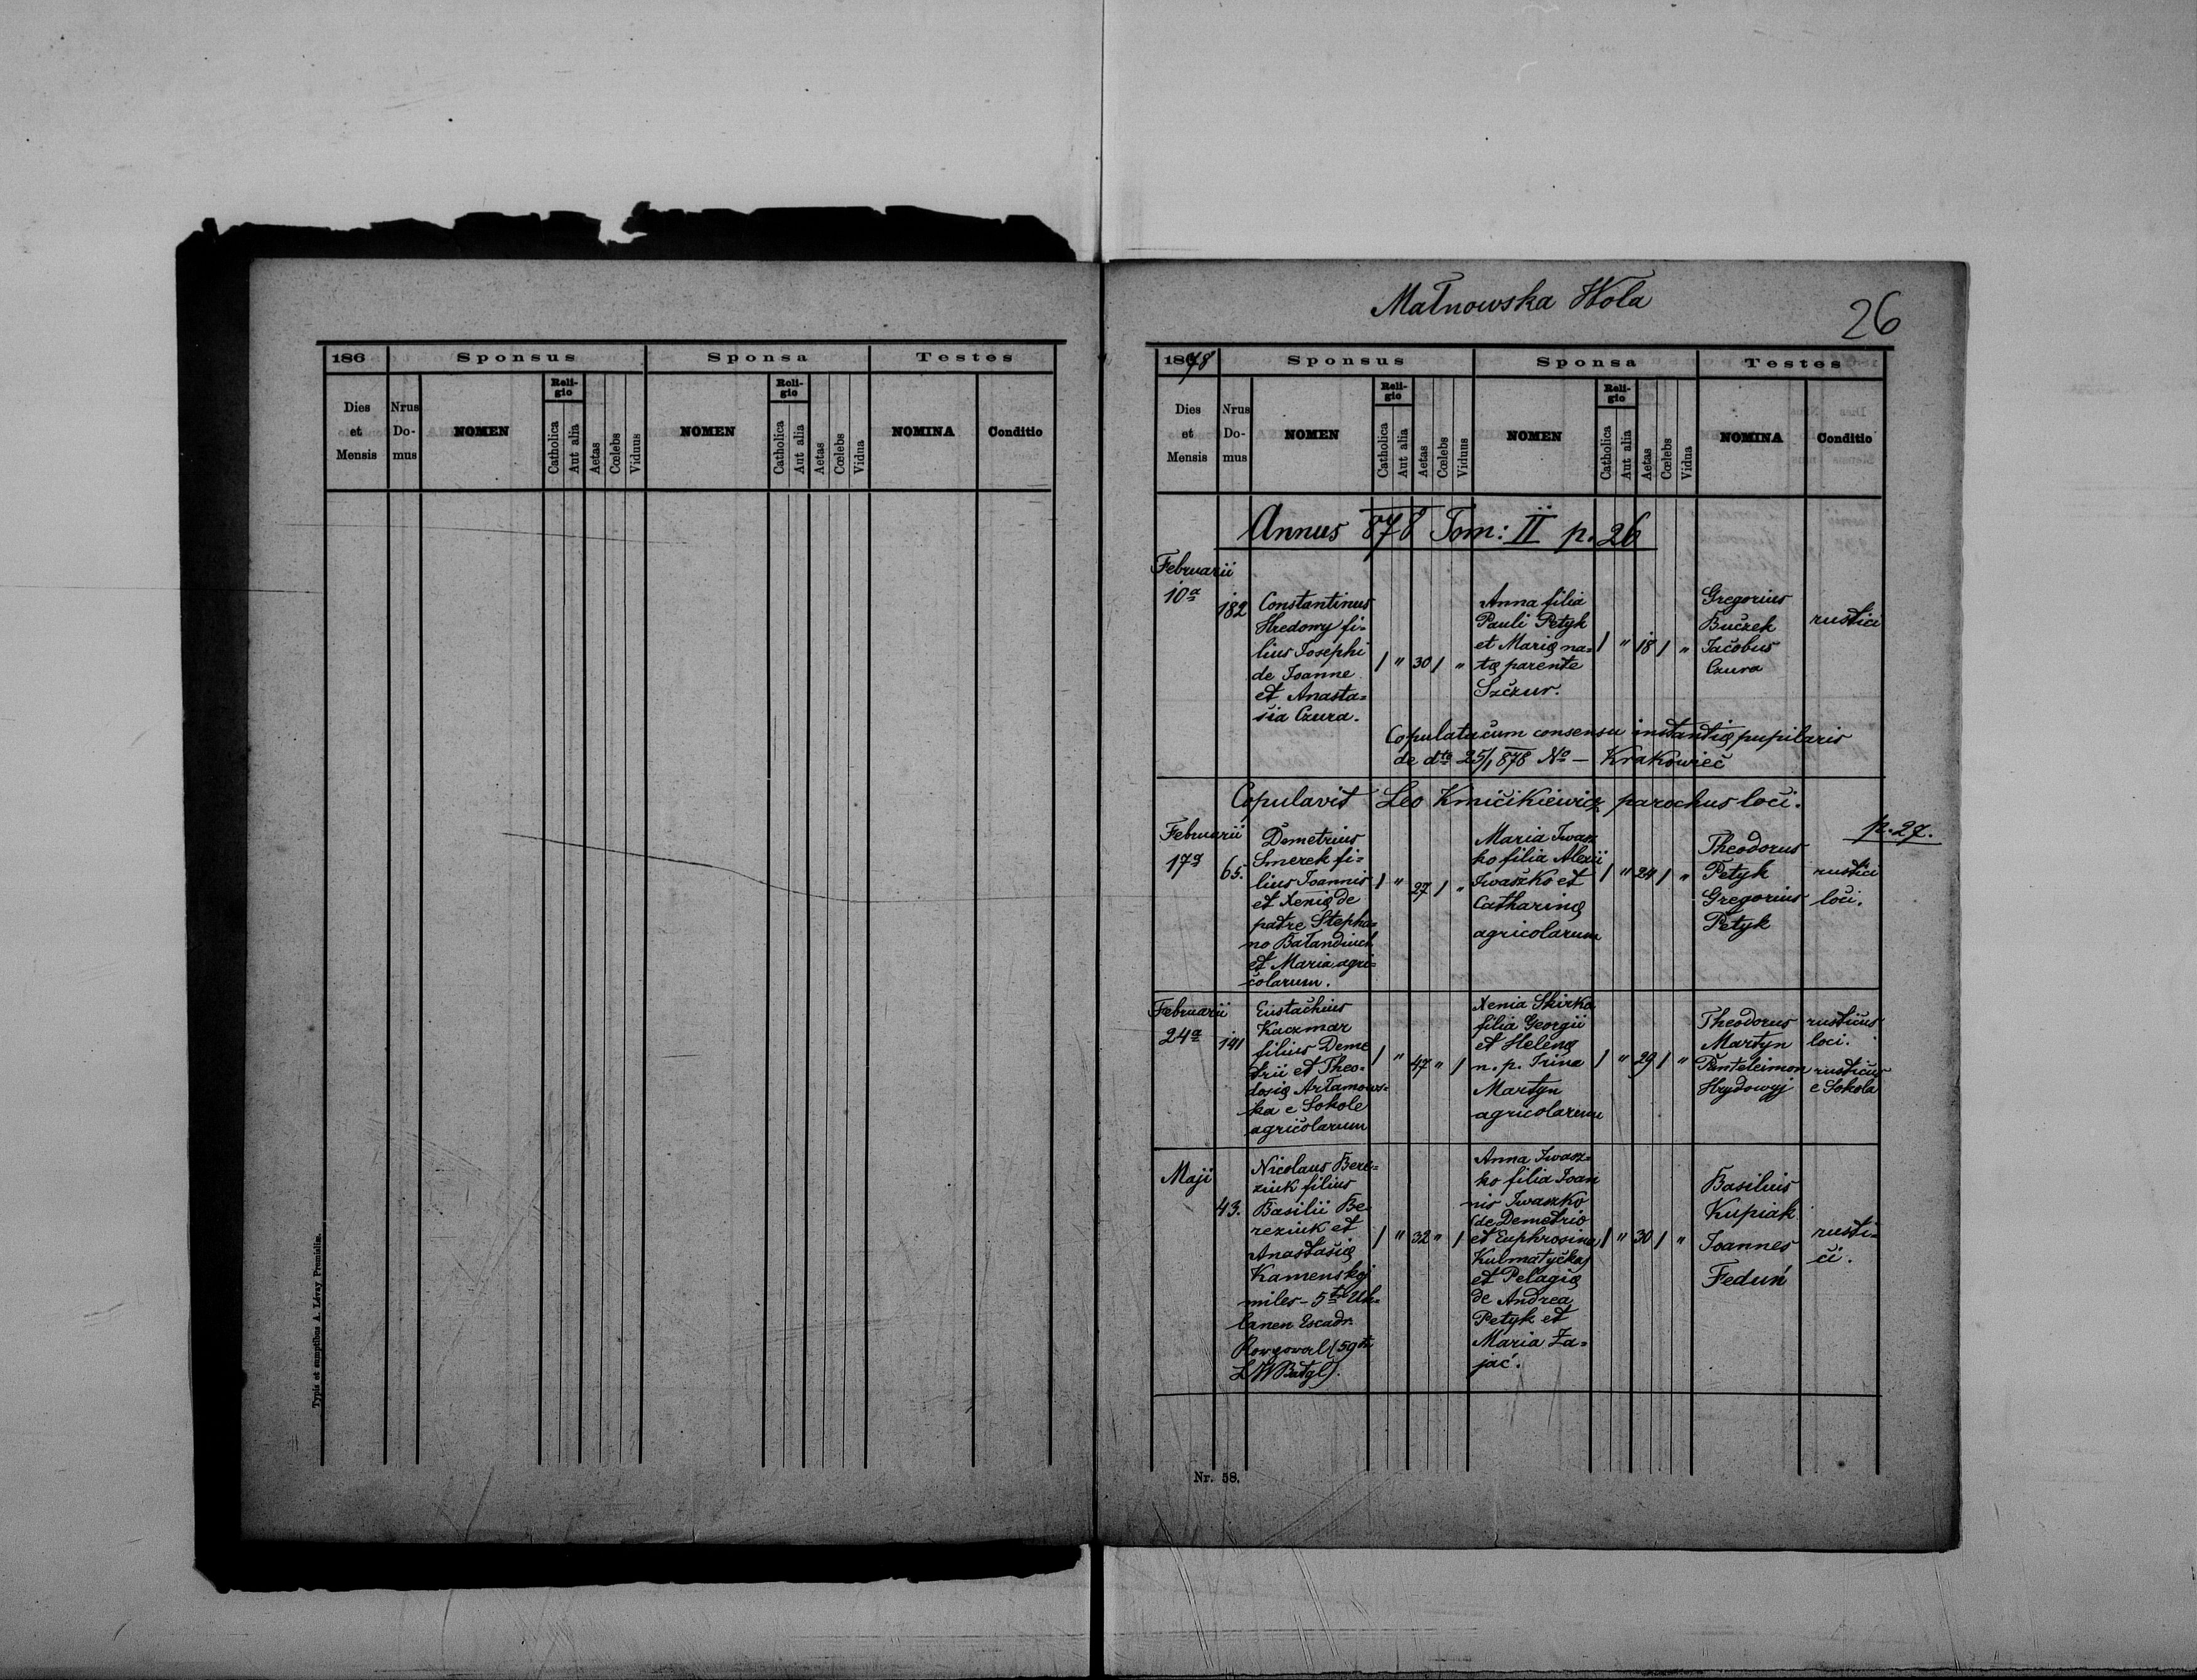 186
Sponsus
Sponsa
Testes
Dies et Mensis
Nrus Do- mus
NOMEN
Reli- gio
Catholica
Aut alia
Aetas
Cœlebs
Viduus
NOMEN
Reli- gio
Catholica
Aut alia
Aetas
Cœlebs
Vidua
NOMINA
Conditio
Typis et sumptibus A. Lévay Premisliæ.
Małnowska Wola
26
1878
Sponsus
Sponsa
Testes
Dies et Mensis
Nrus Do- mus
NOMEN
Reli- gio
Catholica
Aut alia
Aetas
Cœlebs
Viduus
NOMEN
Reli- gio
Catholica
Aut alia
Aetas
Cœlebs
Vidua
NOMINA
Conditio
Annus 878 Tom: II p. 26
Februarii
10a
182
Constantinus
Hredowy fi-
lius Josephi
de Joanne
et Anasta-
sia Czura.
1 " 30 1 "
Anna filia
Pauli Petyk
et Mariæ na-
tæ parente
Szczur.
1 " 18 1 "
Gregorius
Buczek
Jacobus
Czura
rustici
Copulata cum consensu instantiæ pupilaris
de dto 25/1 878 No — Krakowiec
Copulavit Leo Kmicikiewicz parochus loci.
p. 27.
Februarii
17a
65.
Demetrius
Smerek fi-
lius Joannis
et Xeniæ de
patre Stepha-
no Bałandiuch
et Maria agri-
colarum.
1 " 27 1 "
Maria Iwasz
ko filia Alexii
Iwaszko et
Catharinæ
agricolarum
1 " 24 1 "
Theodorus
Petyk
Gregorius
Petyk
rustici
loci.
Februarii
24a
141
Eustachius
Kaczmar
filius Deme
trii et Theo-
dosiæ Artamows-
ka e Sokole
agricolarum
1 " 47 " 1
Xenia Skirka
filia Georgii
et Helenæ
n. p. Irina
Martyn
agricolarum
1 " 29 1 "
Theodorus
Martyn
Panteleimon
Hrydowyj
rusticus
loci.
rusticus
e Sokola
Maji
43.
Nicolaus Bere-
ziuk filius
Basilii Be
reziuk et
Anastasiæ
Kamenskej
miles - 5te Uh-
lanen Escadr.
(59te
L W Batgl).
1 " 32 " 1
Anna Iwasz-
ko filia Joan
nis Iwaszko
(de Demetrio
et Euphrosina
Kulmatycka)
et Pelagiæ
de Andrea
Petyk et
Maria Za-
jac.
1 " 30 1 "
Basilius
Kupiak
Joannes
Feduń
rusti-
ci.
Nr. 58.